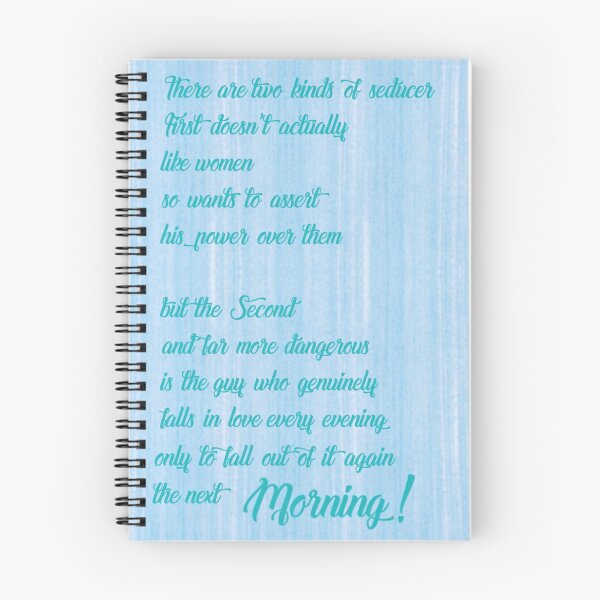 There are two kinds of seducer
First doesn't actually
like women
so wants to assert
his power over them
but the Second
and far more dangerous
is the guy who genuinely
falls in love every evening
only to fall out of it again
the next Morning!